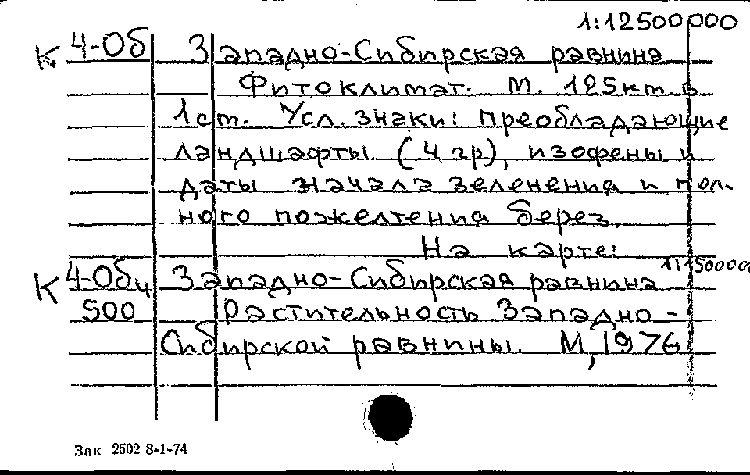 1:12500000
К 4-Об Западно-Сибирская равнина
Фитоклимат. М. 125км в
1 ст. Усл. знаки: преобладающие
ландшафты (4 гр), изофены и
даты начала зеленения и пол-
ного пожелтения берез.
На карте:
К 4-Об Западно-Сибирская равнина 1:1500000
500 Растительность Западно-
Сибирской равнины. М, 1976
Зак 2502 8-1-74